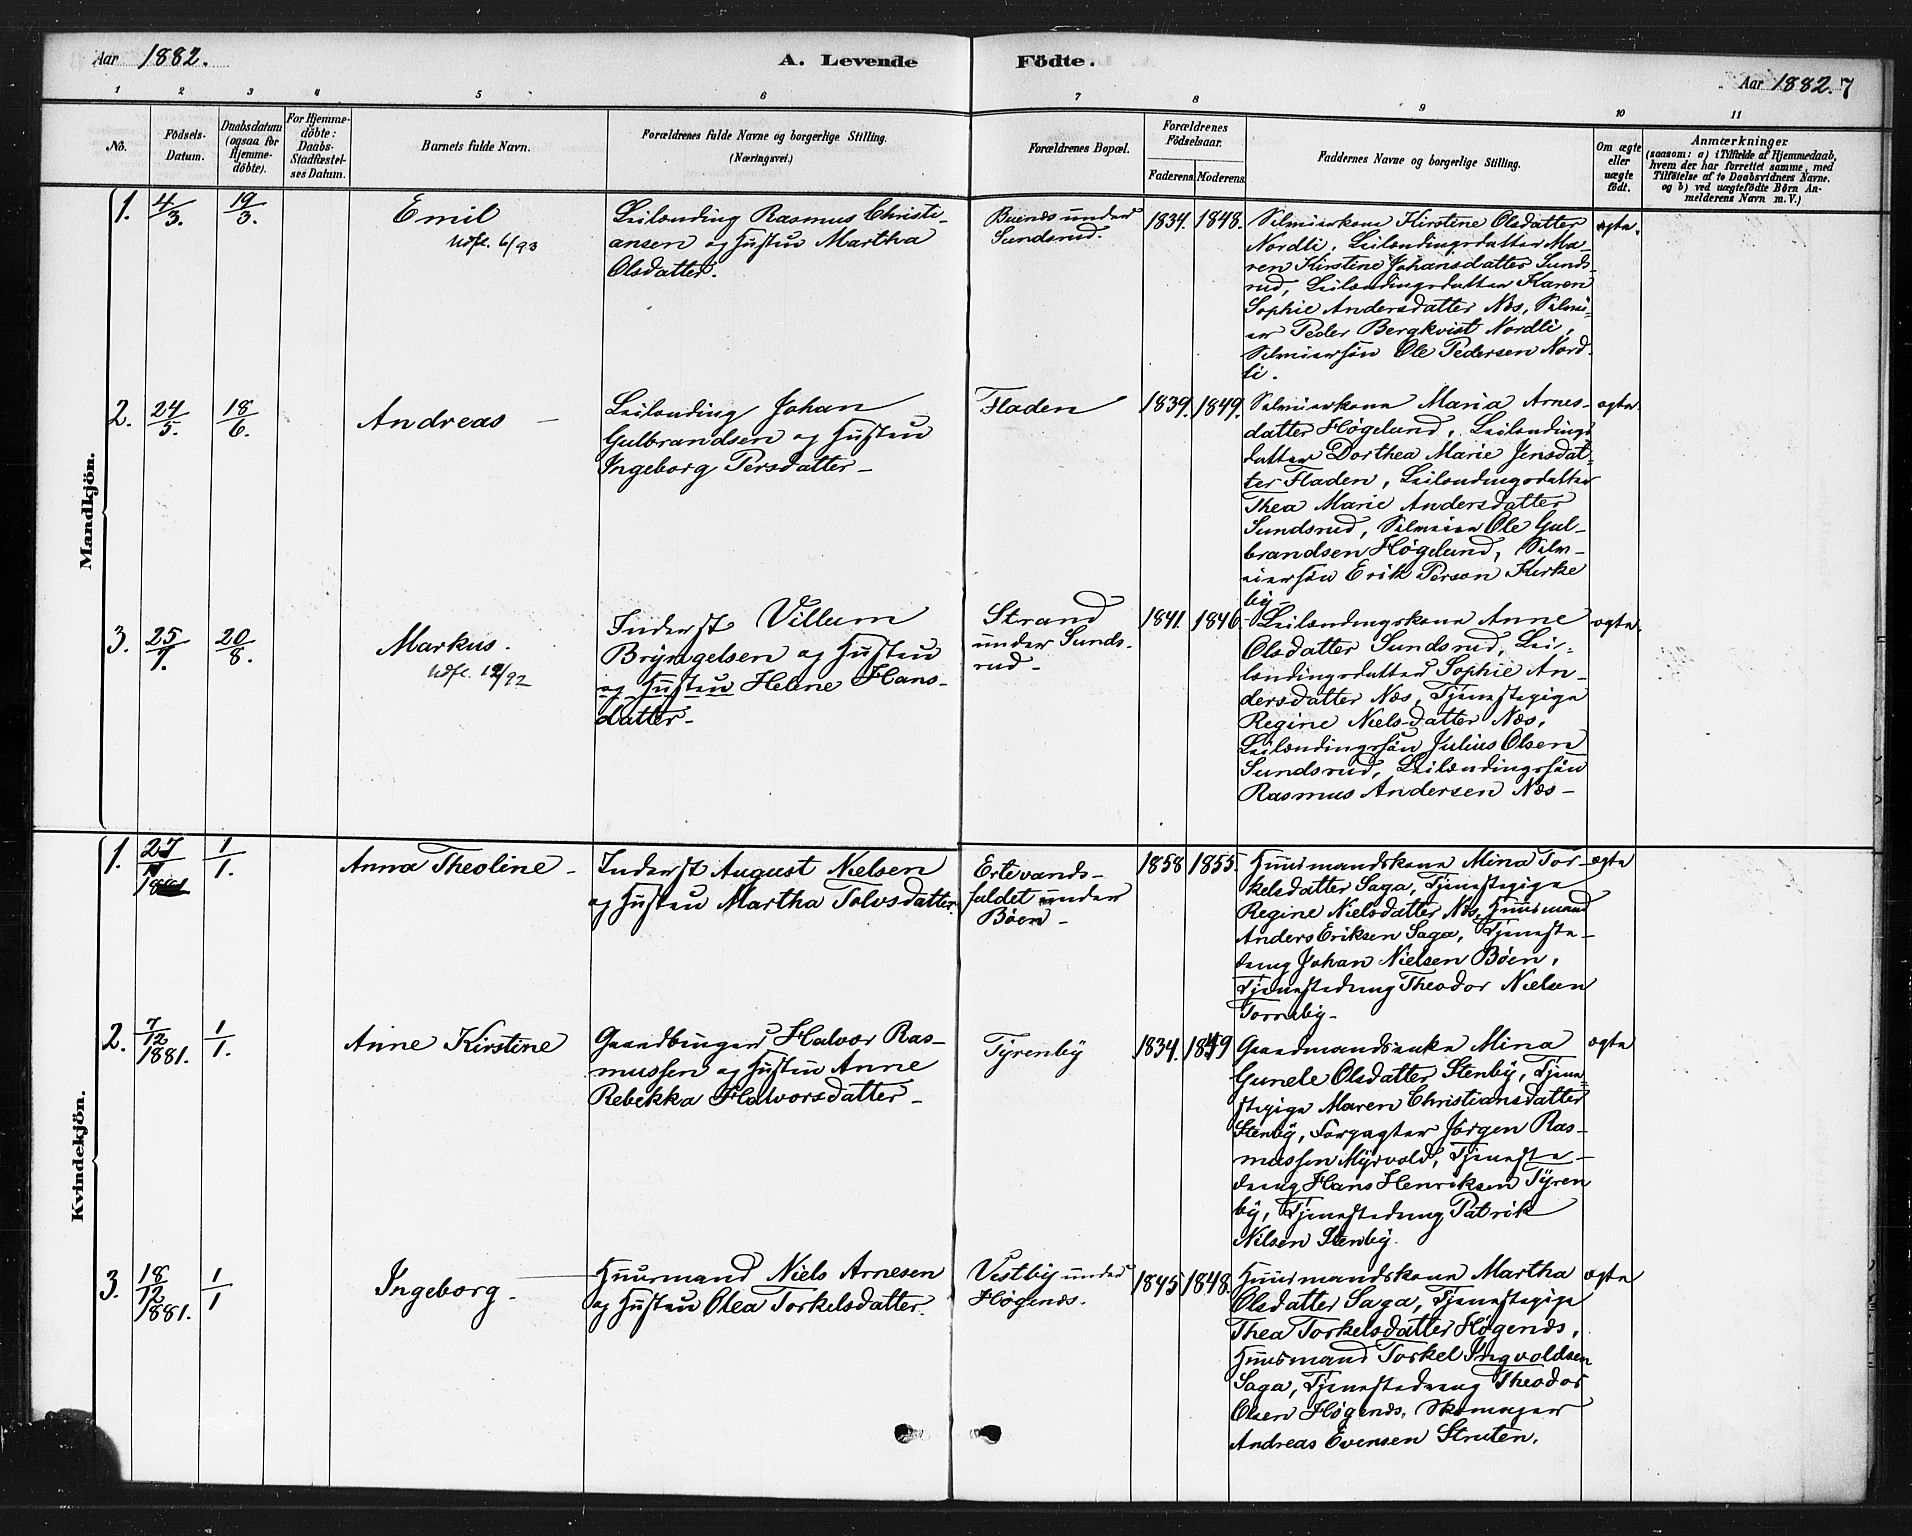 Aar 1882.
A. Levende Födte.
Aar 1882. 7
1 2 3 4 5 6 7 8 9 10 11
No.
Födsels-
Datum.
Daabsdatum
(ogsaa for
Hjemme-
döbte).
For Hjemme-
döbte:
Daabs-
Stadfæstel-
ses Datum.
Barnets fulde Navn.
Forældrenes fulde Navne og borgerlige Stilling.
(Næringsvei.)
Forældrenes Bopæl.
Forældrenes
Födselsaar.
Faderens. Moderens.
Faddernes Navne og borgerlige Stilling.
Om ægte
eller
uægte
födt.
Anmærkninger
(saasom: a) i Tilfælde af Hjemmedaab,
hvem der har forrettet samme, med
Tilföielse af to Daabsvidners Navne,
og b) ved uægtefödte Börn An-
melderens Navn m. V.)
Mandkjön.
1. 4/3. 19/3.
Emil
Udfl. 6/93
Leilænding Rasmus Christi-
ansen og Hustru Martha
Olsdatter.
under
Sundsrud.
1834. 1848.
Selveierkone Kirstine Olsdatter
Nordli, Leilændingsdatter Ma-
ren Kirstine Johansdatter Sunds-
rud, Leilændingsdatter Karen
Sophie Andersdatter Næs, Selvei-
er Peder Bergkvist Nordli,
Selveiersön Ole Pedersen Nord-
li.
ægte.
2. 24/5. 18/6.
Andreas –
Leilænding Johan
Gulbrandsen og Hustru
Ingeborg Persdatter –
Fladen
1839. 1849.
Selveierkone Maria Arnes-
datter Høgelund, Leilændings
datter Dorthea Marie Jensdat-
ter Fladen, Leilændingsdatter
Thea Marie Andersdatter
Sundsrud, Selveier Ole Gul-
brandsen Høgelund, Selv-
eiersön Erik Person Kirke
by –
ægte.
3. 25/7. 20/8.
Markus.
Udfl. 12/92
Inderst Villum
Bryngelsen og Hustru
og Hustru Helene Hans-
datter –
Strand
under Sunds-
rud –
1841. 1846.
Leilændingskone Anne
Olsdatter Sundsrud, Lei-
lændingsdatter Sophie An-
dersdatter Næs, Tjenestepige
Regine Nielsdatter Næs,
Leilændingssön Julius Olsen
Sundsrud, Leilændingssön
Rasmus Andersen Næs –
ægte.
Kvindekjön.
1. 27/11 1881 1/1.
Anna Theoline –
Inderst August Nielsen
og Hustru Martha Tolvsdatter.
Ertevands-
faldet under
Böen –
1858 1855.
Huusmandskone Mina Tor-
kelsdatter Saga, Tjenestepige
Regine Nielsdatter Næs, Huusmand
Anders Eriksen Saga, Tjeneste-
dreng Johan Nielsen Böen,
Tjenestedreng Theodor Nielsen
Torneby –
ægte
2. 7/12 1881. 1/1.
Anne Kirstine
Gaardbruger Halvor Ras-
mussen og Hustru Anne
Rebekka Halvorsdatter –
Tyrenby
1834. 1849
Gaardmandsenke Mina
Gunele Olsdatter Stenby, Tjene-
stepige Maren Christiansdatter
Stenby, Forpagter Jörgen Ras-
mussen Myrvold, Tjeneste-
dreng Hans Henriksen Tyren
by, Tjenestedreng Patrik
Nilsen Stenby.
ægte
3. 18/12 1881. 1/1
Ingeborg –
Huusmand Niels Arnesen
og Hustru Olea Torkelsdatter.
Vestby under
Högenæs.
1845 1848.
Huusmandskone Martha
Olsdatter Saga, Tjenestepige
Thea Torkelsdatter Högenæs,
Huusmand Torkel Ingvoldsen
Saga, Tjenestedreng Theodor
Olsen Högenæs, Skomager
Andreas Evensen Struten.
ægte